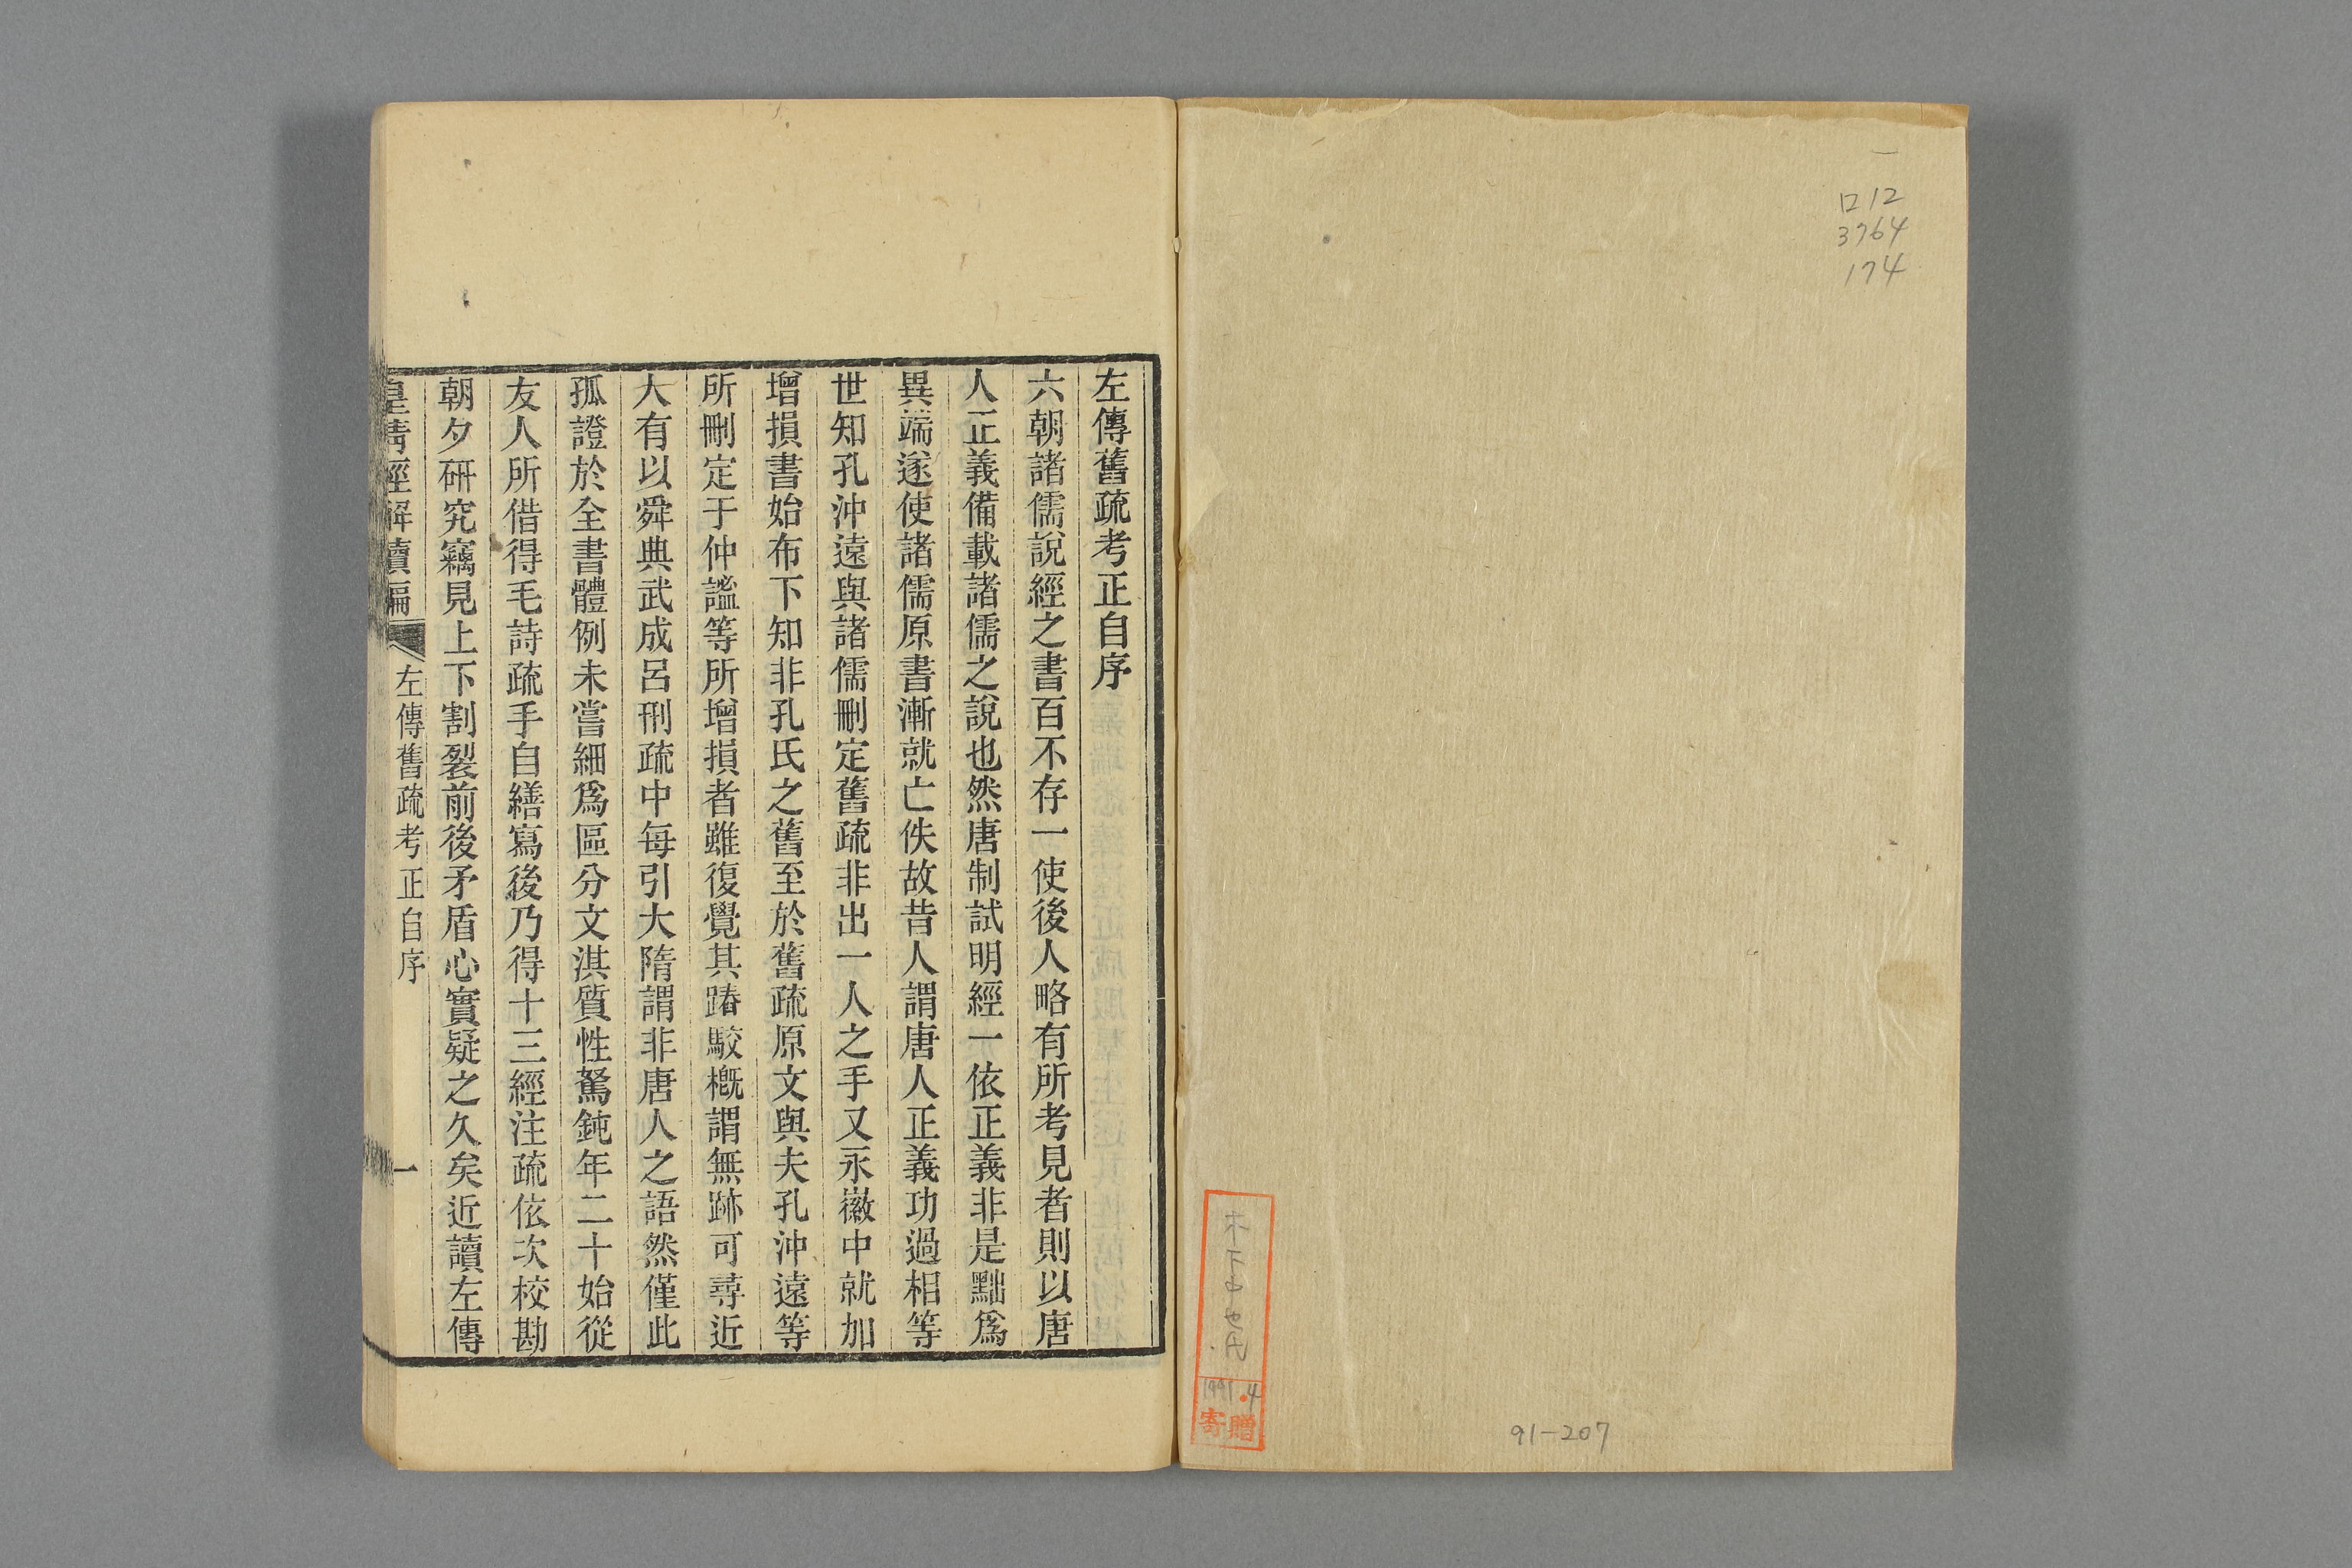 口12
3764
174
寄贈
91-207
左傳舊疏考正自序
六朝諸儒說經之書百不存一使後人略有所考見者則以唐
人正義備載諸儒之說也然唐制試明經一依正義非是黜爲
異端遂使諸儒原書漸就亡佚故昔人謂唐人正義功過相等
世知孔沖遠與諸儒刪定舊疏非出一人之手又永徽中就加
增損書始布下知非孔氏之舊至於舊疏原文與夫孔沖遠等
所刪定于仲謐等所增損者雖復覺其踳駮槪謂無跡可尋近
人有以舜典武成呂刑疏中每引大隋謂非唐人之語然僅此
孤證於全書體例未嘗細爲區分文淇質性駑鈍年二十始從
友人所借得毛詩疏手自繕寫後乃得十三經注疏依次校勘
朝夕硏究竊見上下割裂前後矛盾心實疑之久矣近讀左傳
皇淸經解續編
左傳舊疏考正自序
一